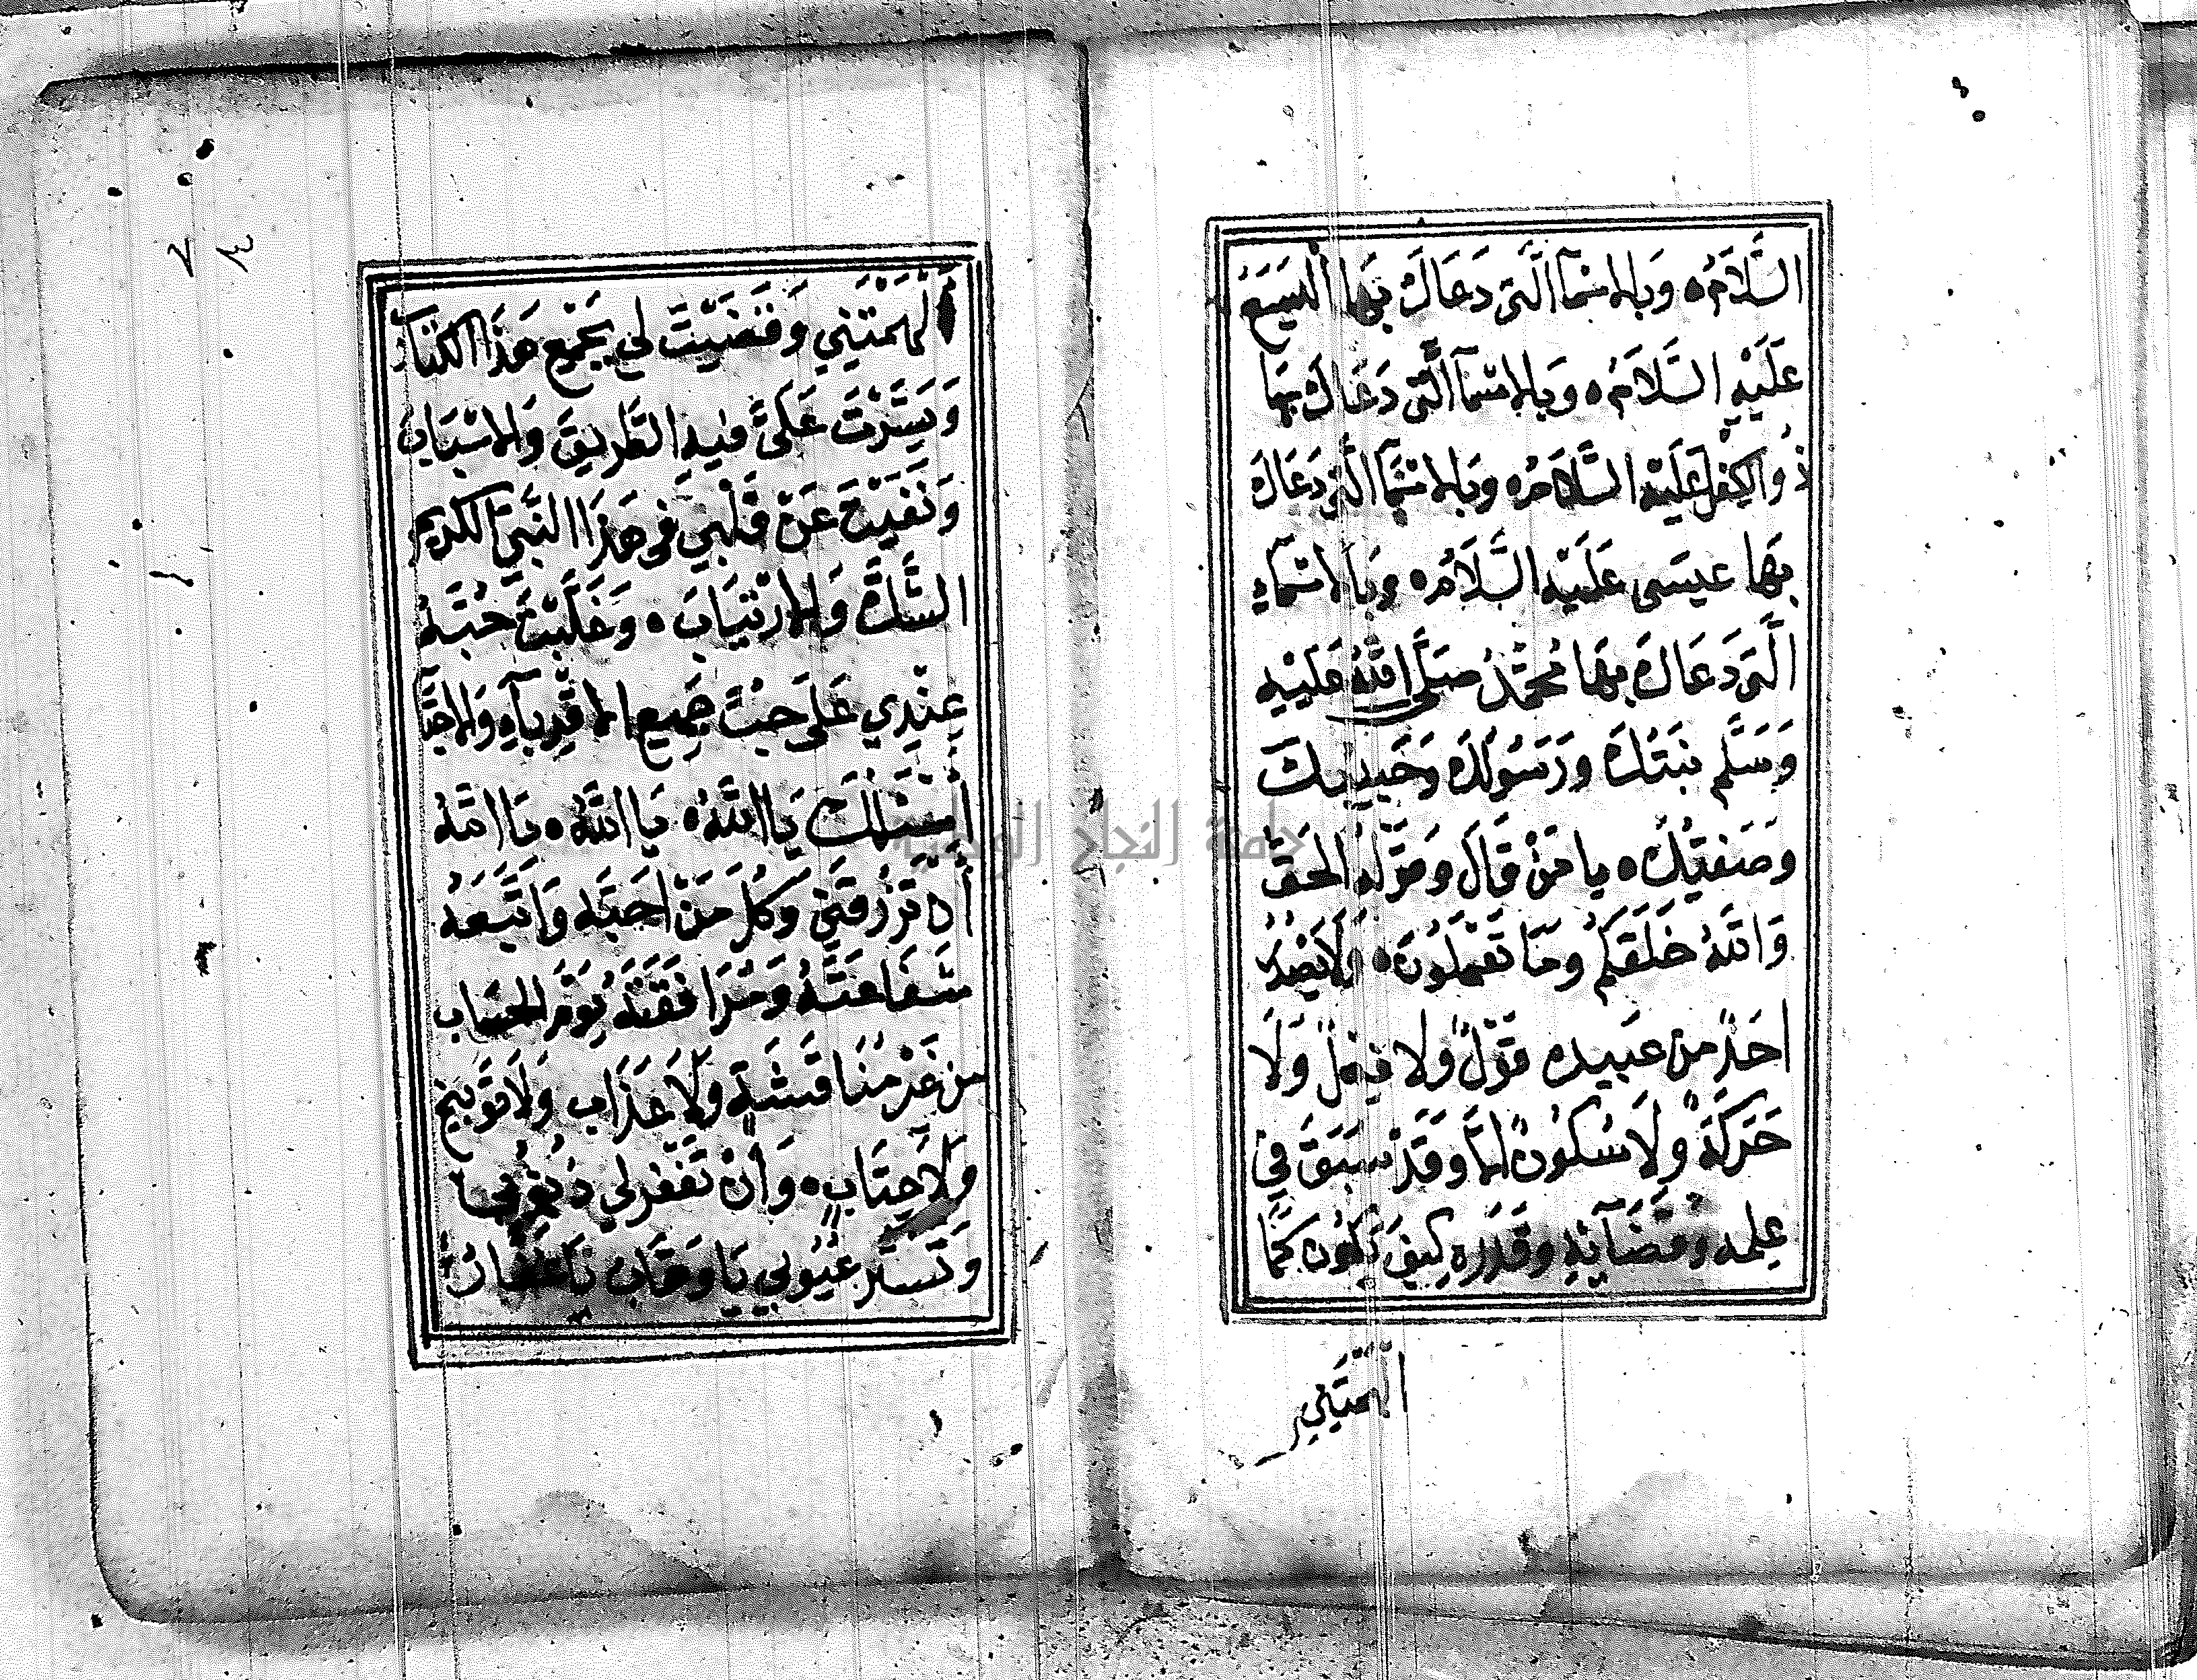 السَّلَامُ ه وَبِالاسْمَآ الَّتِي دَعَاكَ بِهَا اَلْيَسَعُ
عَلَيْهِ السَّلَامُ ه وَبِالاسْمَآ الَّتِي دَعَاكَ بِهَا
ذُوالكِفْلِ عَلَيْهِ السَّلَامُ ه وَبِالاسْمَآ الَّتِي دَعَاكَ
بِهَا عيسَى عَلَيْهِ السَّلَامُ ه وَبِالاسْمَآءِ
الَّتِي دَعَاكَ بِهَا مُحَمَّدٌ صَلَّى اللهُ عَلَيْهِ
وَسَلَّم نَبِيُّكَ وَرَسُولُكَ وَحَبِيبُكَ
وَصَفِيُّكَ ه يا مَنْ قَالَ وَقَوْلُهُ الحَقُّ
وَاللهُ خَلَقَكُمْ وَمَا تَعْمَلُونَ ه وَلَا يَصْدُرُ
احَدٍ مِن عَبيدِه قَوْلٌ وَلا فِعْلٌ وَلَا
حَرَكَةٌ وَلَا سُكُونٌ الَّا وَقَدْ سَبَقَ فِي
عِلمِه وَقَضَآئِهِ وَقَدَرِه كَيْفَ يَكُونُ كَمَا
اَلْهَمْتَنِي
اَلْهَمْتَنِي وَقَضَيْتَ لِي بِجَمْعِ هَذَا الكِتَابِ
وَيَسَّرْتَ عَلَيَّ فِيهِ الطَّرِيقَ وَالاسْبَابَ
وَنَفَيْتَ عَنْ قَلْبِي فِي هَذَا النَّبِيِّ الكَرِيمِ
الشَّكَّ وَالارْتِيَابَ ه وَغَلَّبْتَ حُبَّهُ
عِنْدِي عَلَى حُبِّ جَمِيع الاقْرِبَآءِ وَالاحِبَّا
أَسْئَلُكَ يَا اللَّهُ ه يَا اللَّهُ ه يَا اللهُ
أَن تَرْزُقَنِي وَكُلَّ مَنْ احَبَّه وَاتَّبَعَهُ
شَفَاعَتَهُ وَمُرَافَقَتَهُ يَوْمَ الحِسَاب
مِن غَيْرِ مُنَاقَشَةٍ وَلَا عَذَاب وَلَا تَوْبِيخٍ
وَلَا عِتَابٍ ه وَأَنْ تَغْفِرَ لِي ذُنُوبِي
وَتَسْتُرَ عُيُوبِي يَا وَهَّابُ يَا غَفَّارُ
جامعة النجاح الوطنية